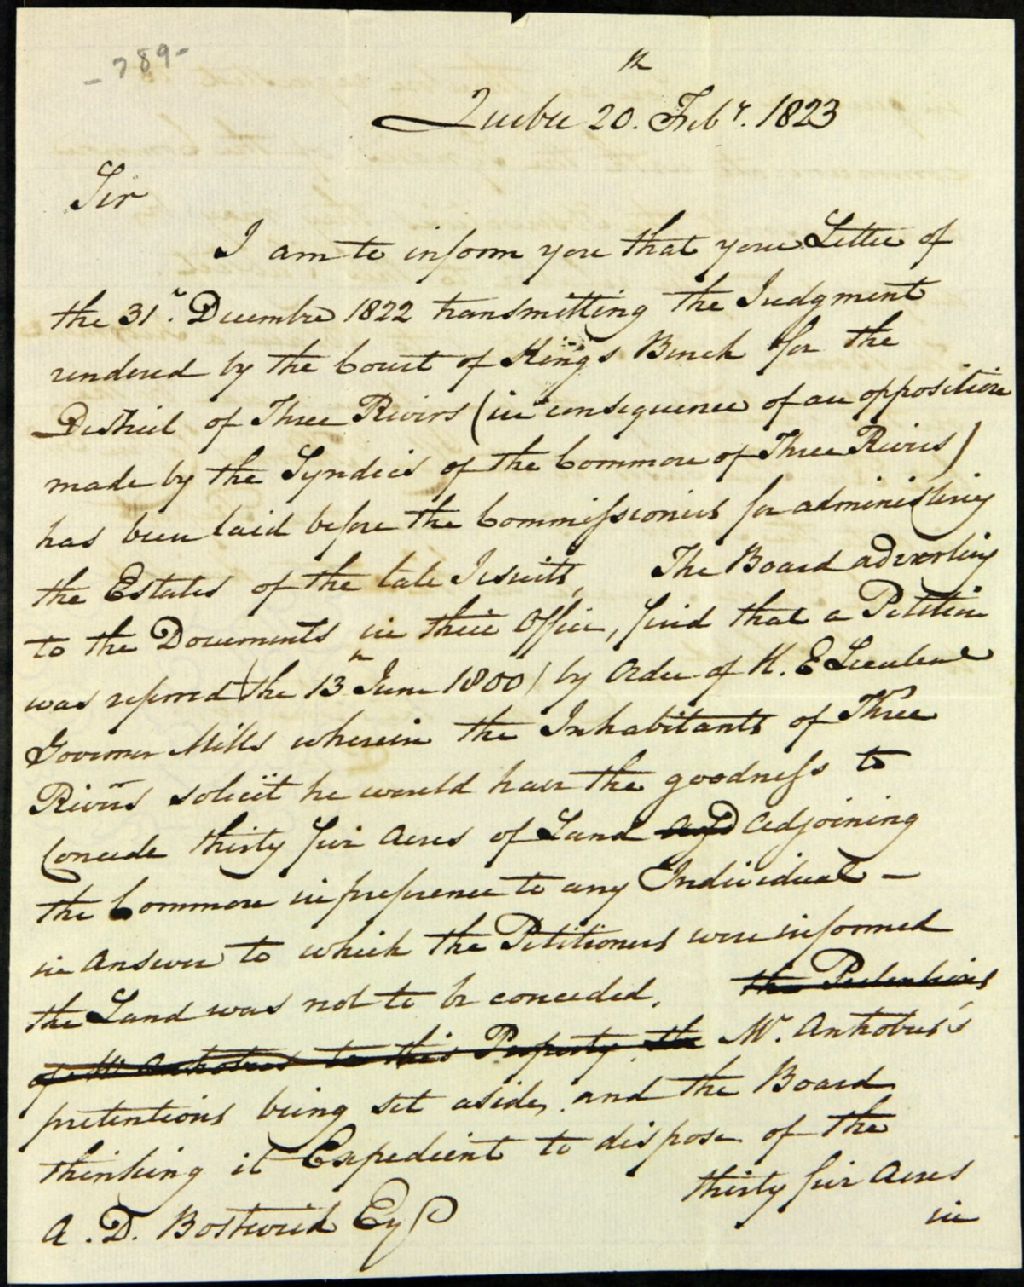 - 789 -
th
Quebec 20. Feby. 1823
Sir
I am to inform you that your Letter of
the 31st. December 1822 transmitting the Judgment
rendered by the Court of Kings Bench for the
District of Three Rivers (in consequence of an opposition
made by the Syndics of the Common of Three Rivers)
has been laid before the Commissioners for administering
the Estates of the late Jesuits, The Board adverting
to the Documents in their Office, find that a Petition
was referred (the 13th June 1800) by Order of H. E Lieutent
Governor Mills wherein the Inhabitants of Three
Rivers solicit he would have the goodness to
Concede thirty five Acres of Land and adjoining
the Common in preference to any Individual -
in Answer to which the Petitioners were informed
the Land was not to be conceded. the Pretentions
of Mr Ankobus to this Property the Mr. Ankobus's
pretentions being set aside, and the Board
thinking it Expedient to dispose of the
thirty five Acres
in
A. D. Bostwick Esq